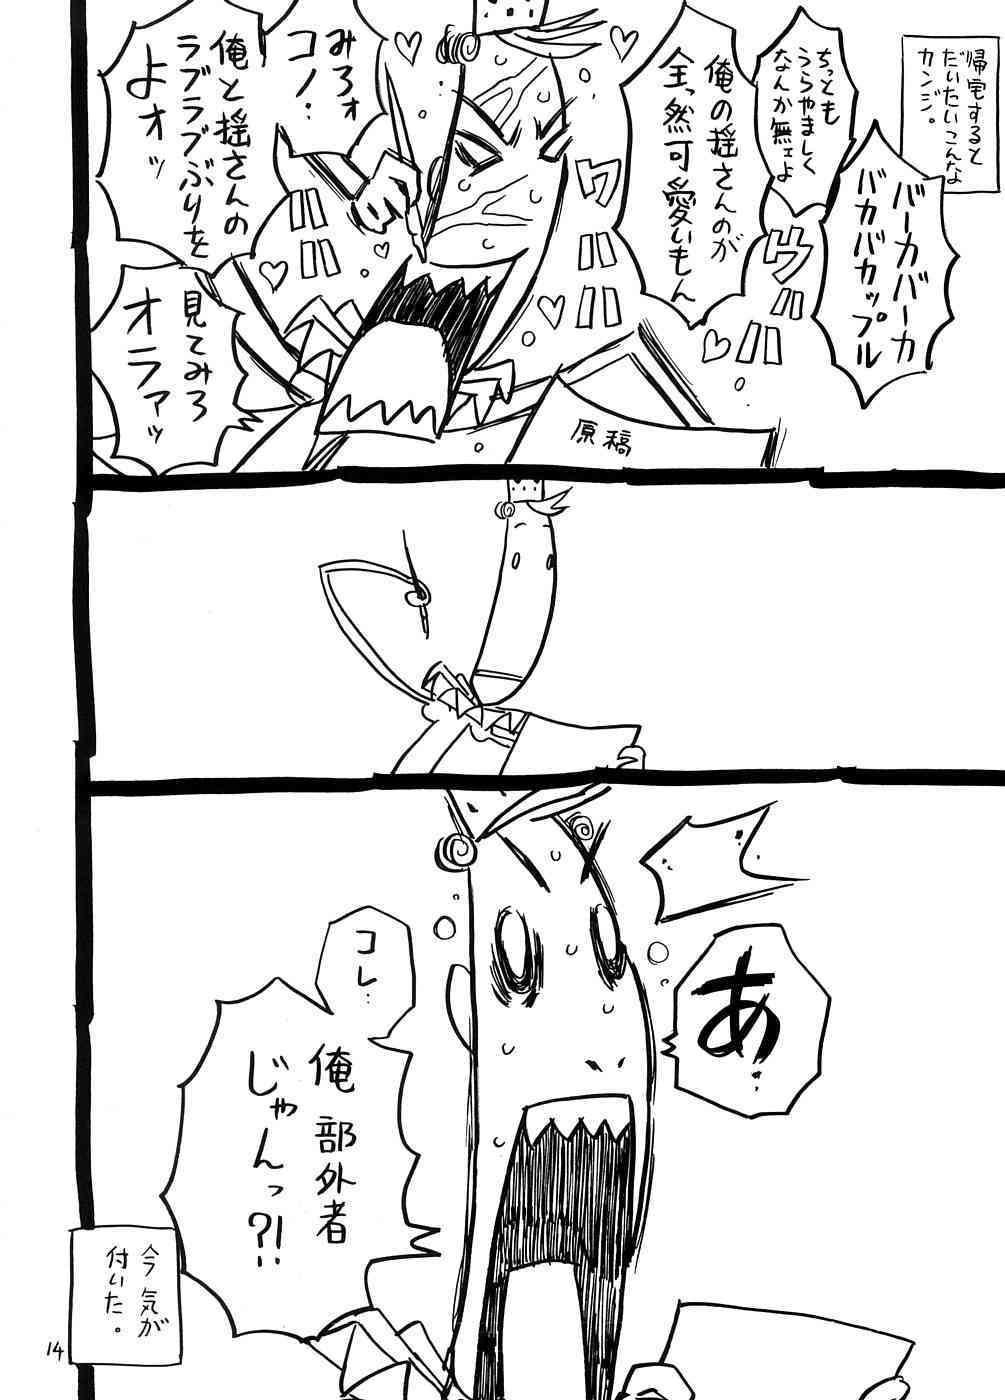 帰宅すると
だいたいこんな
カンジ。
バーカバーカ
バカバカップル
ちっとも
うらやましく
なんか無ェよ
俺の揺さんのが
全っ然可愛いもん
ウハハハ
ワハハハ
みろォ
コノ…
俺と揺さんの
ラブラブぶりを
よォッ
見てみろ
オラァッ
原稿
あ…
コレ…
俺 部外者
じゃんっ?!
今 気が
付いた。
14